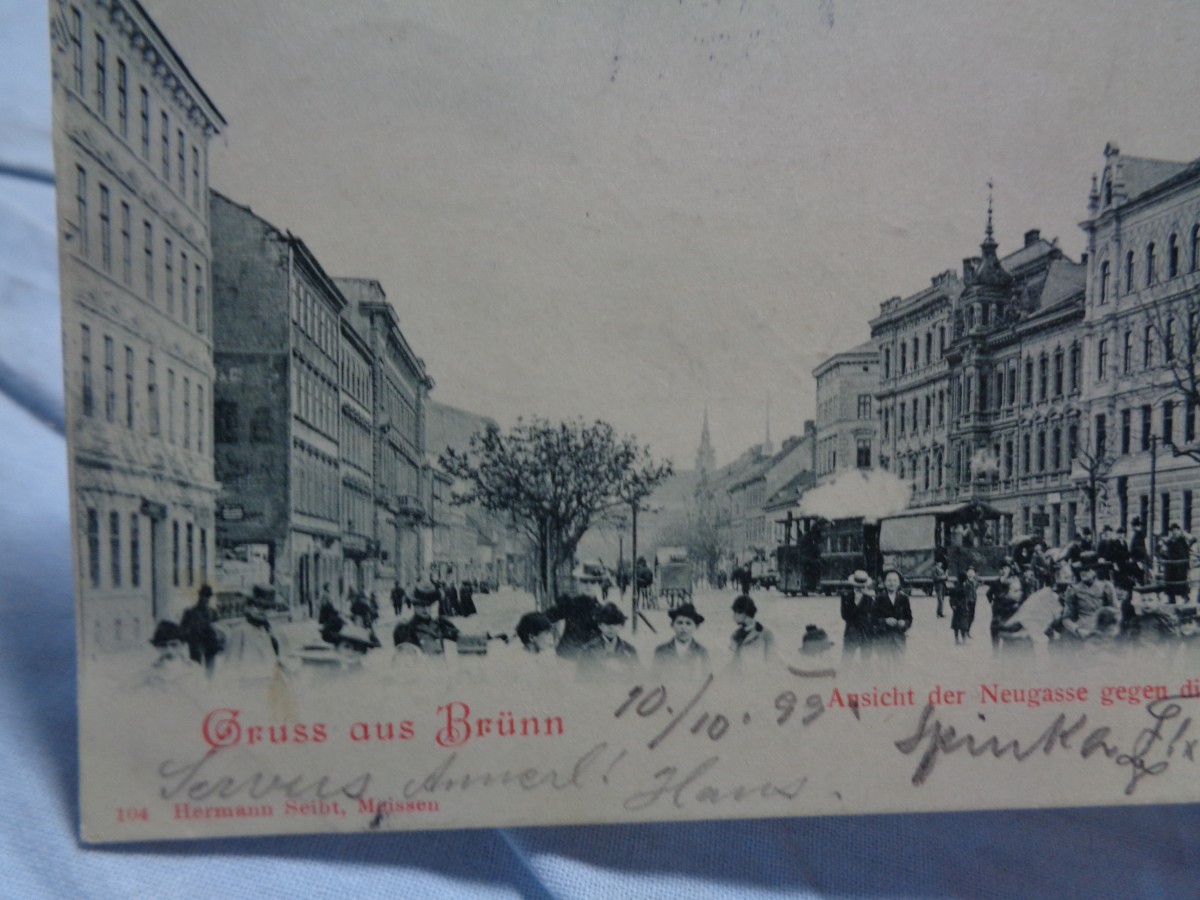 Gruss aus Brünn
10./10. 99.
Ansicht der Neugasse gegen di
Spinka
Servus Annerl! Hans.
104 Hermann Seibt, Meissen